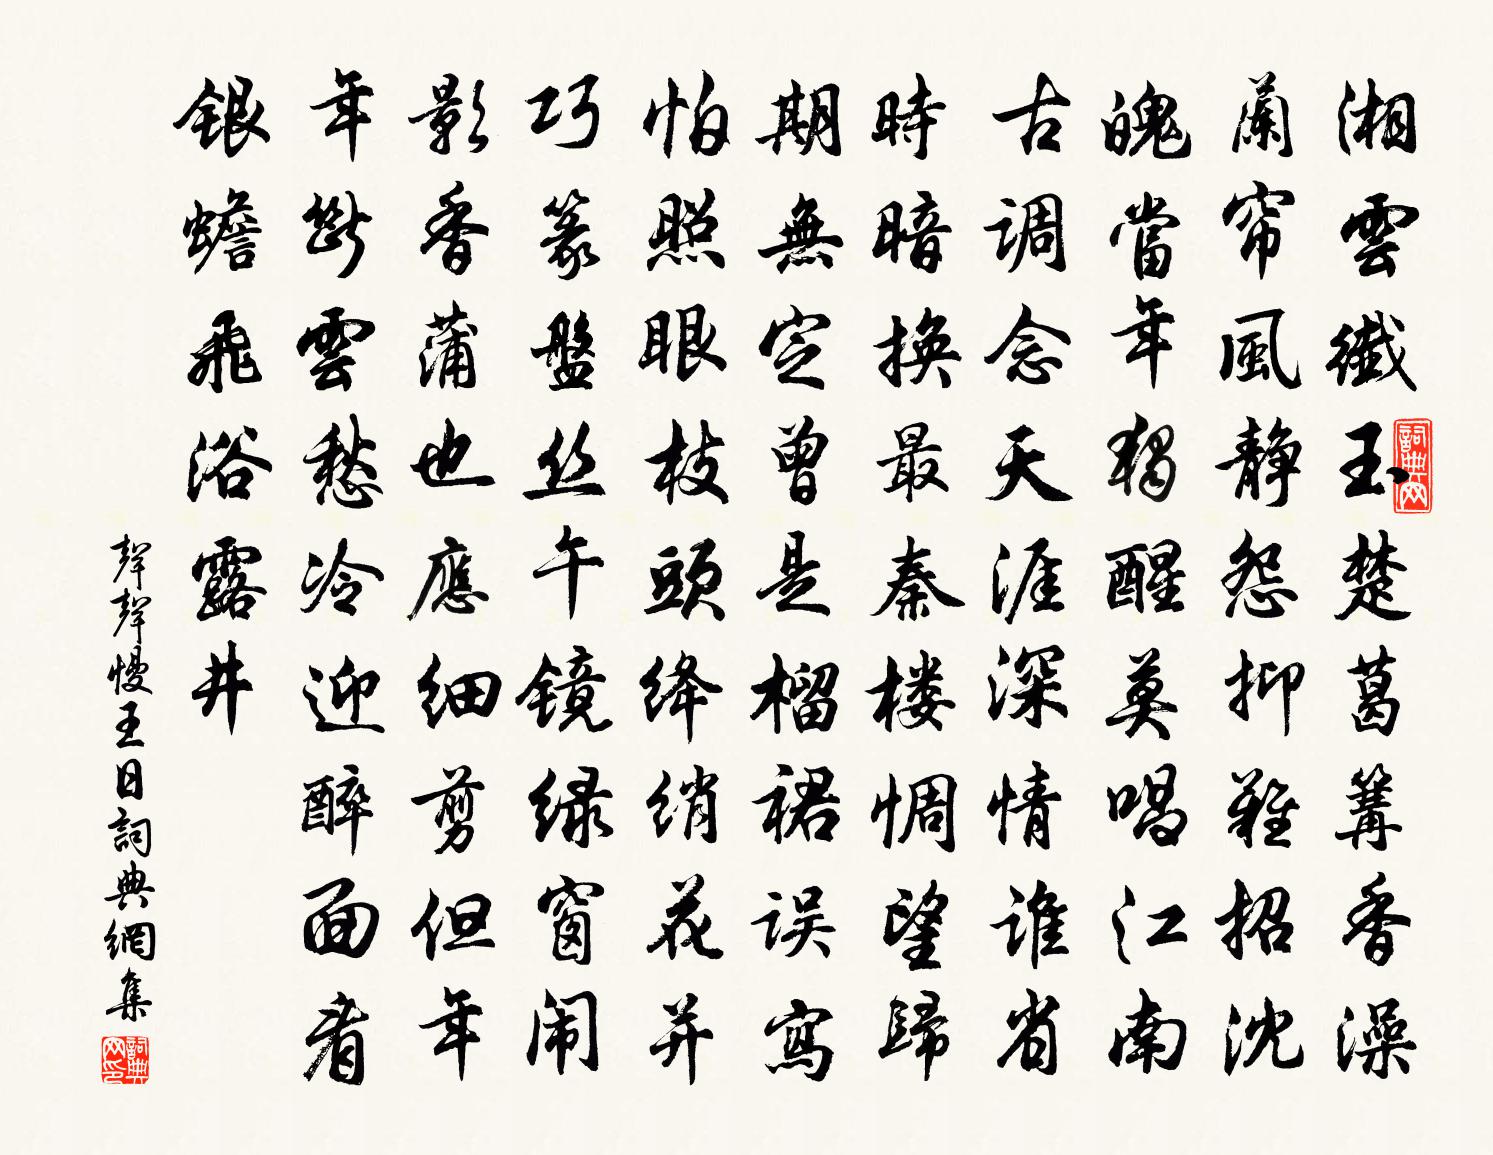 湘雲纖玉楚葛篝香澡
蘭帘風静怨抑難招沈
魄當年獨醒莫唱江南
古调念天涯深情谁省
時暗換最秦楼惆望歸
期無定曾是榴裙误寫
怕照眼枝頭绛绡花并
巧篆盤丝午镜绿窗闹
影香蒲也應细剪但年
年斷雲愁冷迎醉面看
銀蟾飛浴露井
聲聲慢五日詞典網集
詞典网
詞典网印